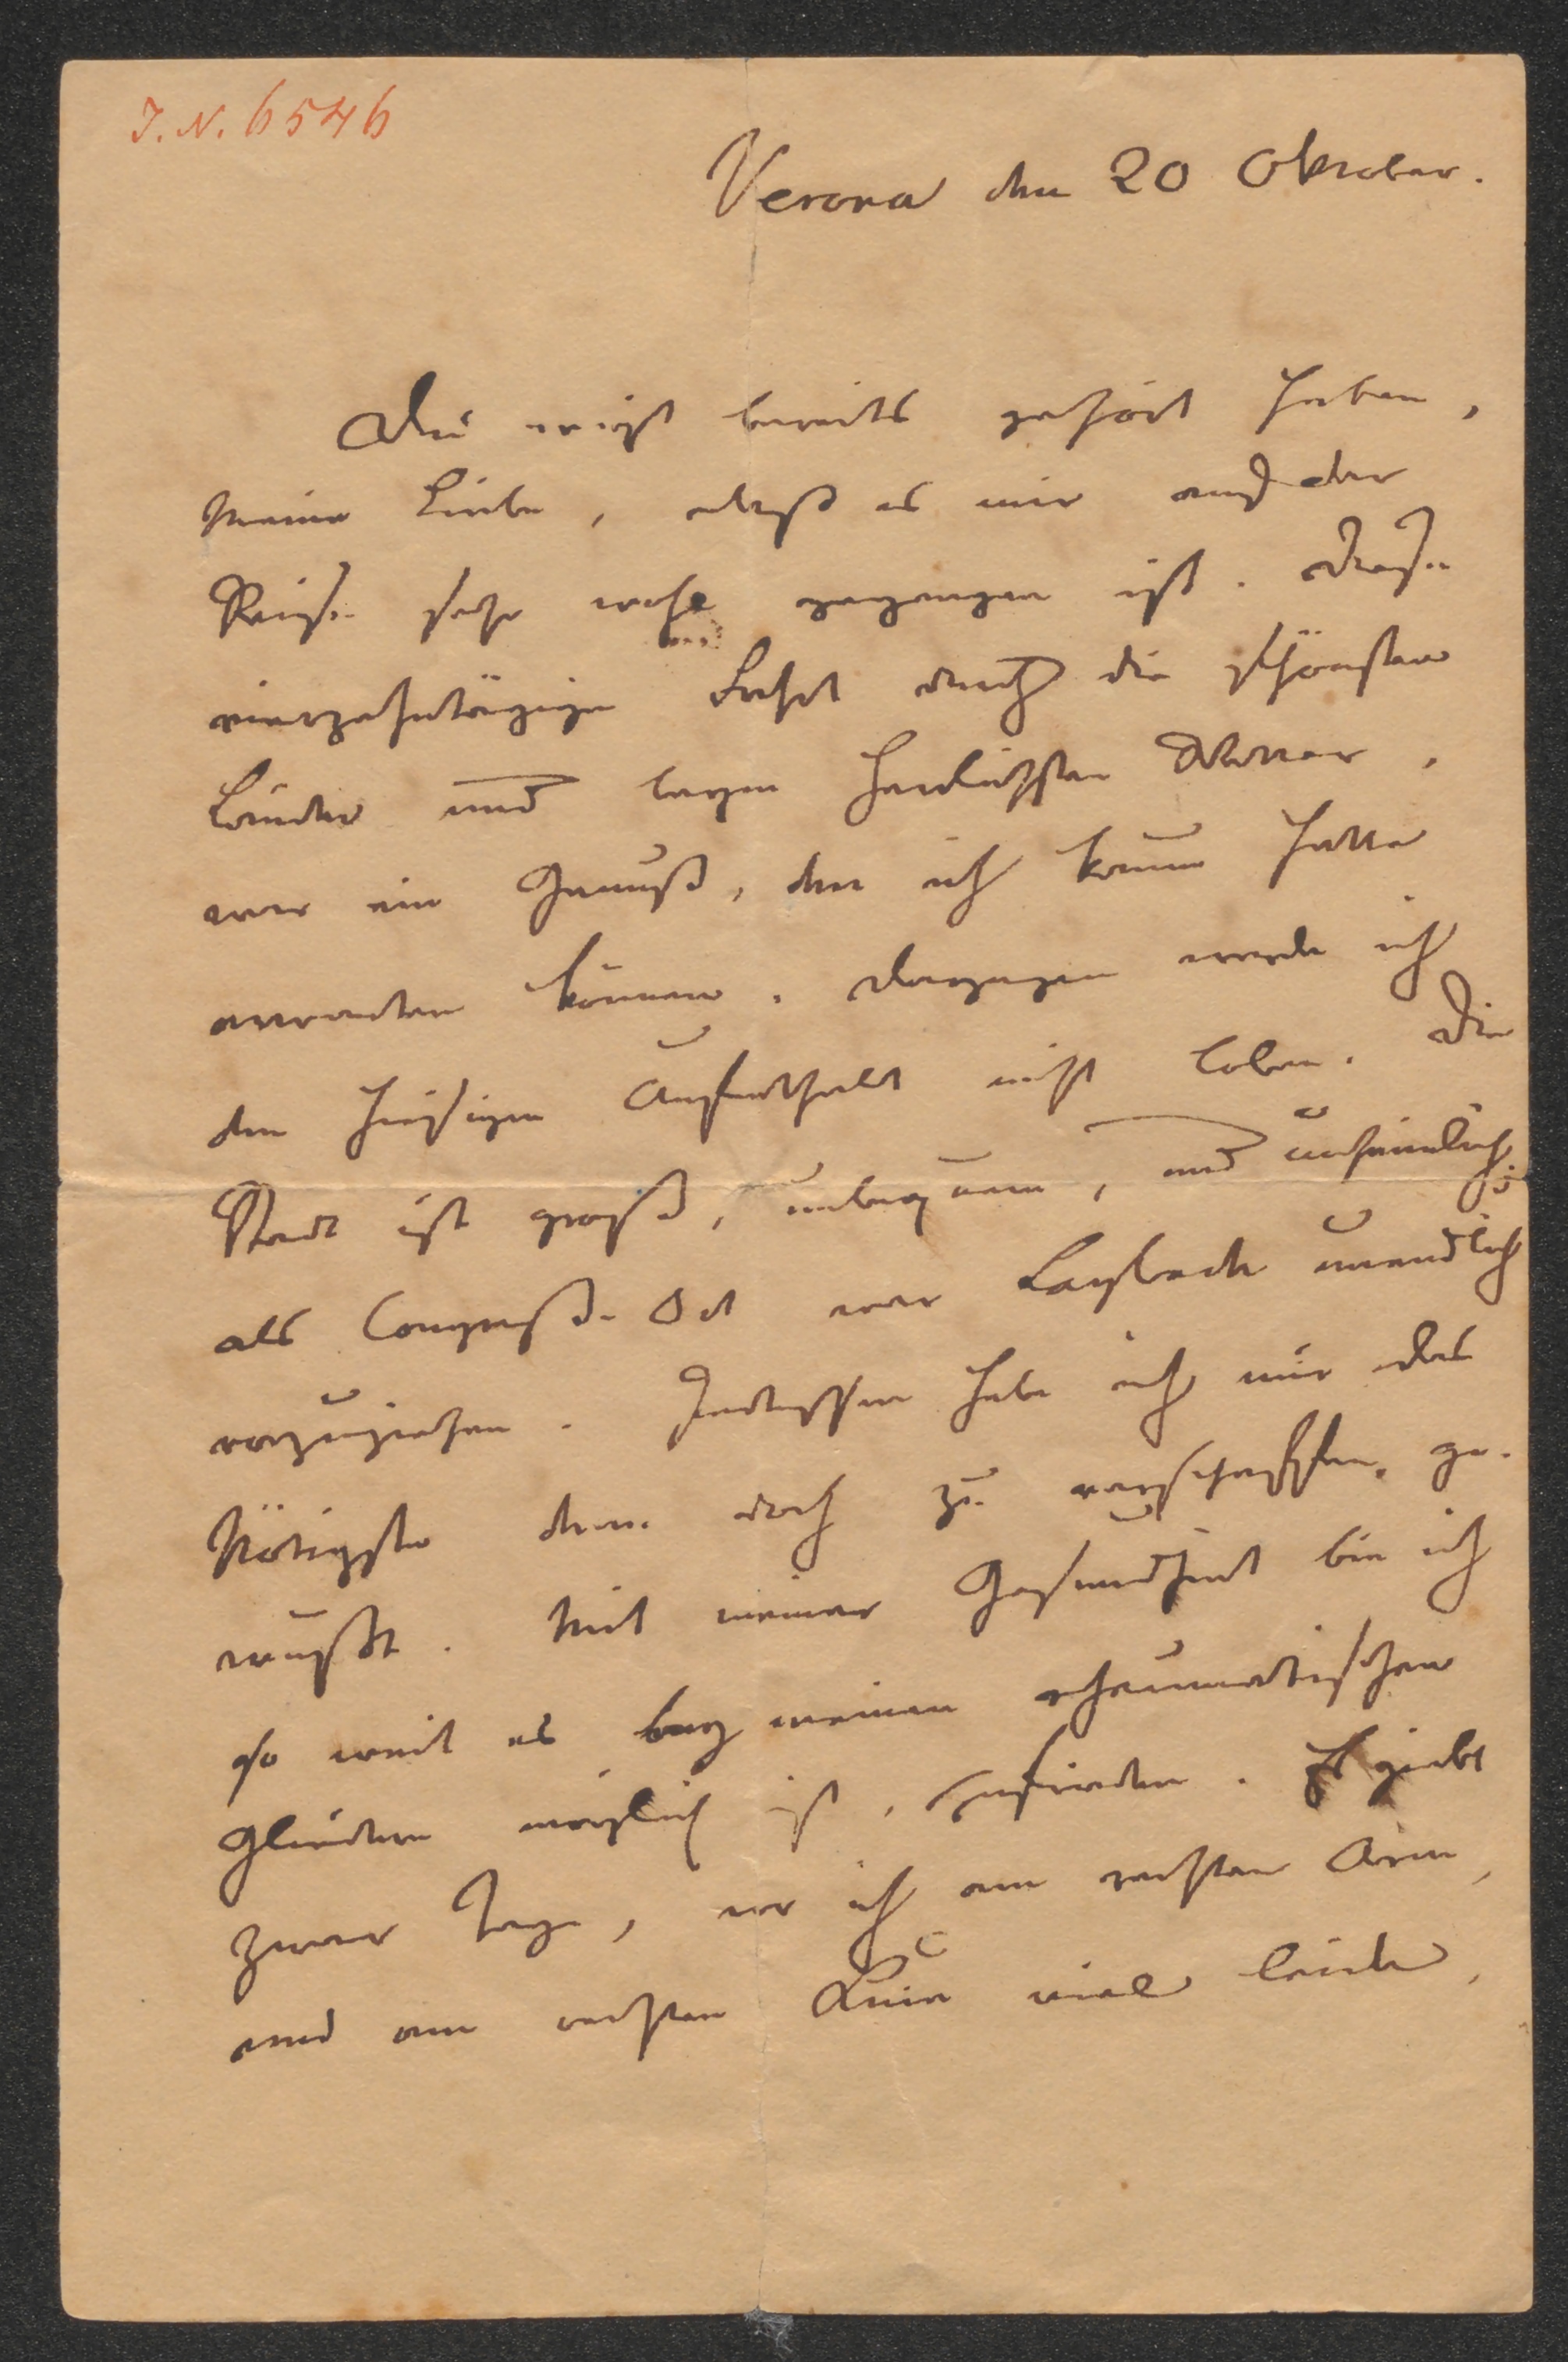 I. N. 6546
Verona den 20 Oktober.
Du wirst bereits gehört haben,
meine Liebe, daß es mir auf der
Reise sehr wohl gegangen ist. Diese
vierzehntägige Fahrt durch die schönsten
Länder und beym herrlichsten Wetter,
war ein Genuß, den ich kaum hätte
erwarten können. Dagegen werde ich
den hiesigen Aufenthalt nicht loben. Die
Stadt ist groß, unbequem, und unheimlich;
als Congreß-Ort war Laybach unendlich
vorzuziehen. Indessen habe ich mir das
Nötigste denn doch zu verschaffen ge-
wußt. Mit meiner Gesundheit bin ich
so weit es bey meinen rheumatischen
Gliedern möglich ist, zufrieden. Es giebt
zwar Tage, wo ich am rechten Arm,
und am rechten Knie viel leide,